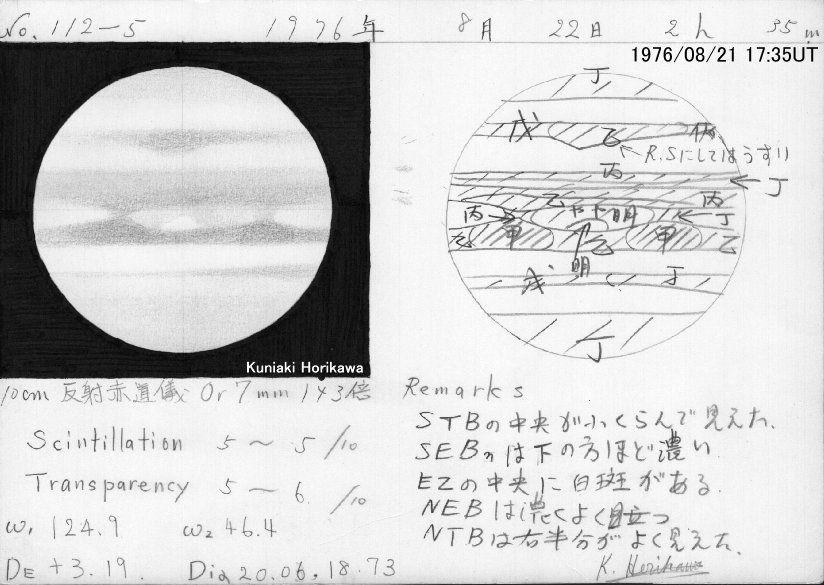 No. 112-5 1976年 8月 22日 2h 35m
1976/08/21 17:35UT
丁
戊 乙
←R.Sにしてはうすい
丙
←丁
乙 丙
丙→ やや明 ←丁
乙 甲 乙 甲 乙
明
戊 丁
丁
Kuniaki Horikawa
10cm 反射赤道儀 Or 7mm 143倍
Scintillation 5～5/10
Transparency 5～6/10
ω₁ 124.9 ω₂ 46.4
DE +3.19. Dia 20.06, 18.73
Remarks
STBの中央がふくらんで見えた.
SEBnは下の方ほど濃い.
EZの中央に白斑がある.
NEBは濃くよく目立つ
NTBは右半分がよく見えた.
K. Horikawa